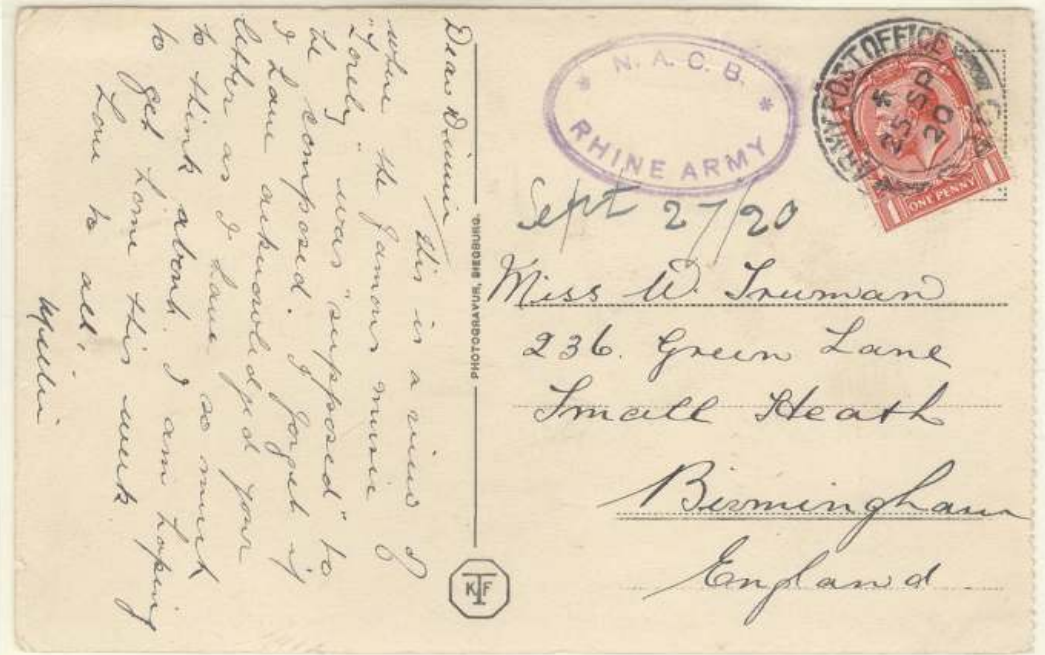 Dear Winnie
This is a view of
where the famous music of
"Lorely" was "supposed" to
be composed. I forget if
I have acknowledged your
letter as I have so much
to think about. I am hoping
to get home this week
Love to all.
PHOTOGRAVUR, SIEGBURG
KTF
* N. A. C. B. *
RHINE ARMY
ARMY POST OFFICE
25 SP
20
ONE PENNY
1 1
Sept 27/20
Miss W. Truman
236. Green Lane
Small Heath
Birmingham
England